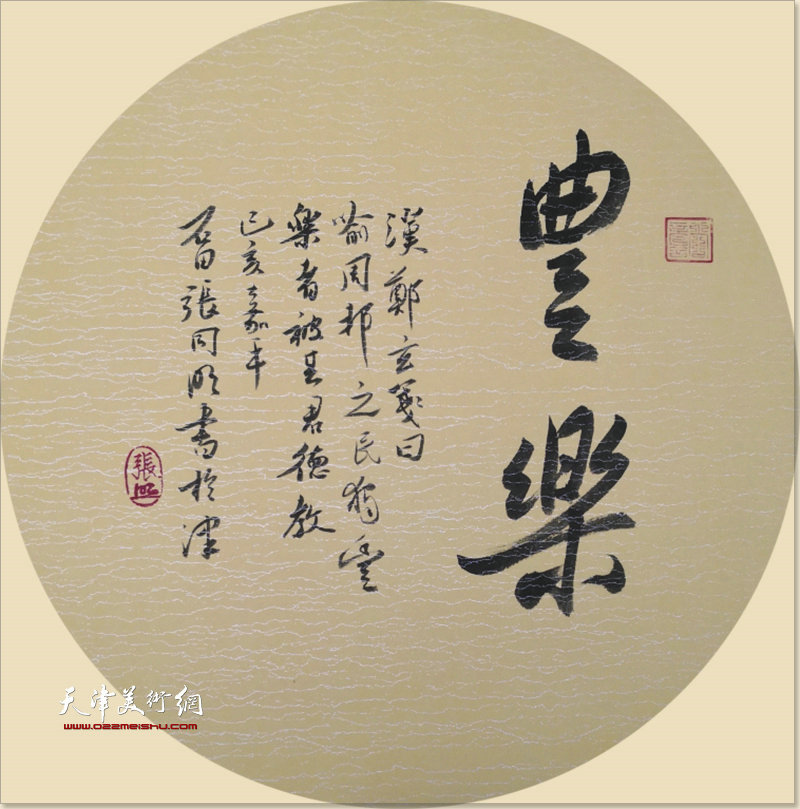 豐樂
漢鄭玄箋曰
喻周邦之民獨豐
樂者被其君德教
己亥嘉平
石田張同明書於津
張明
天津美術網
www.022meishu.com